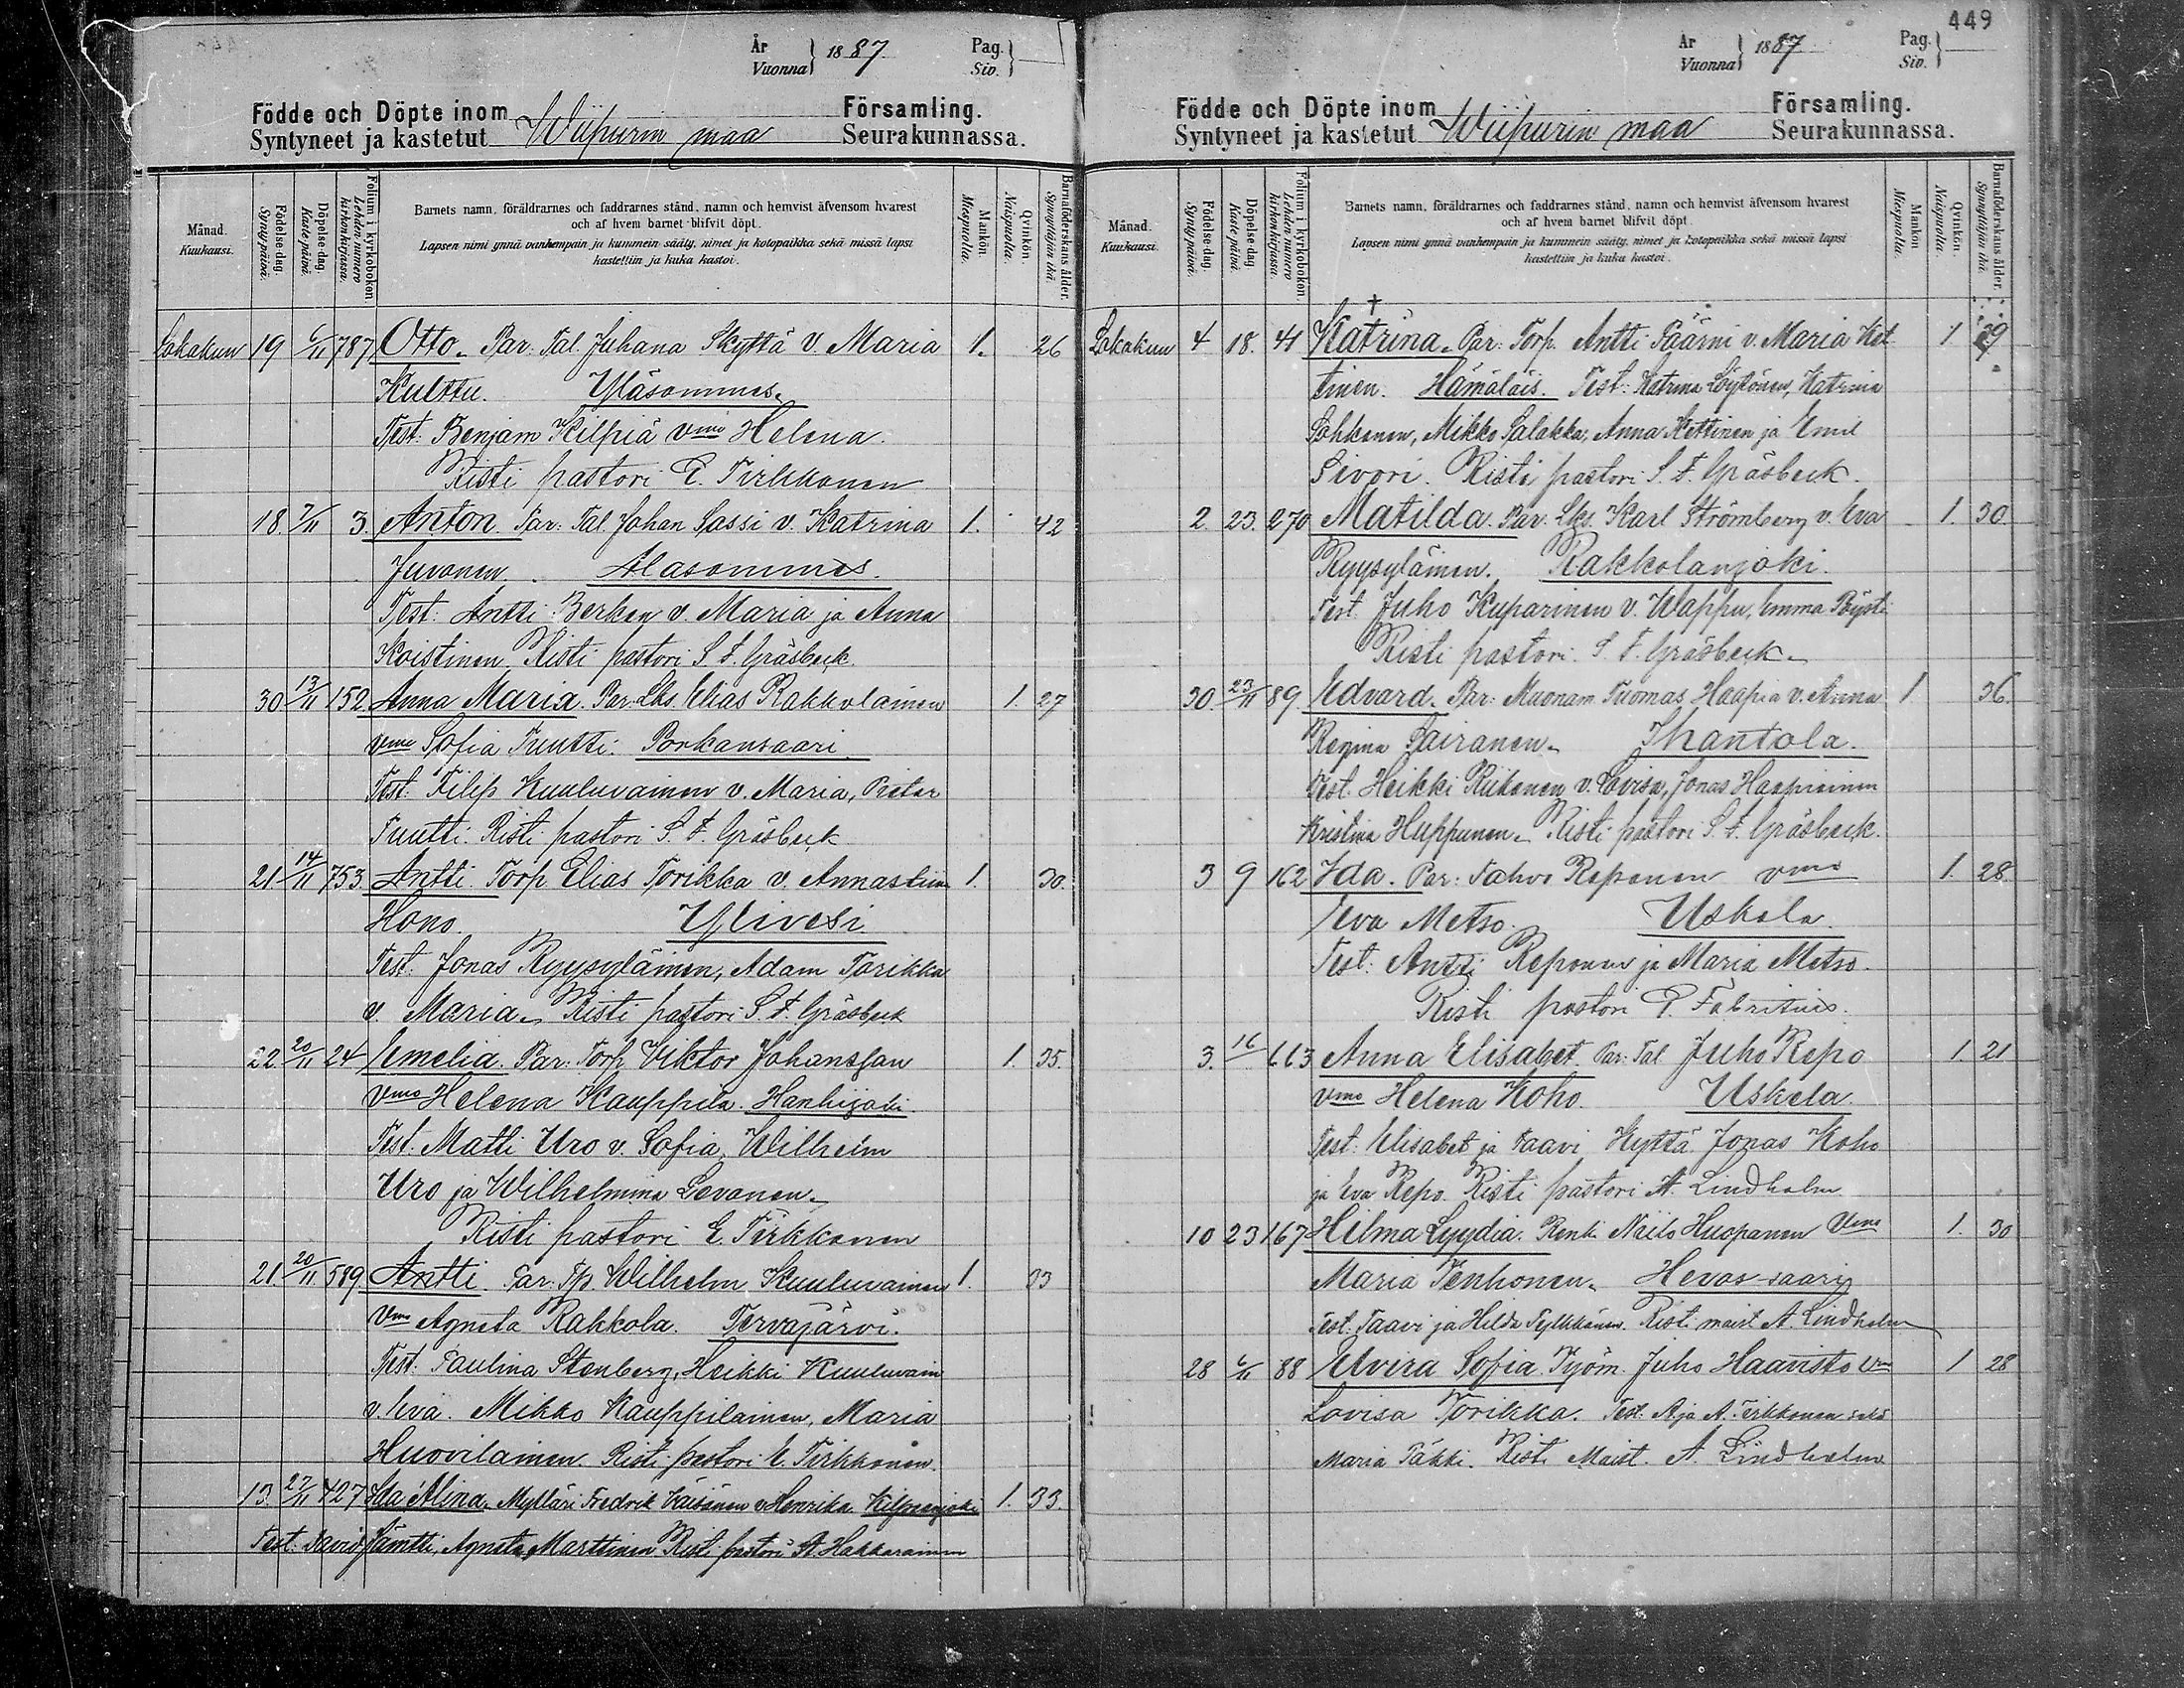 År
Vuonna } 1887.
Pag.
Siv. }
Födde och Döpte inom Församling.
Syntyneet ja kastetut Wiipurin maa Seurakunnassa.
Månad. Kuukausi.
Födelse-dag. Synty-päivä.
Döpelse-dag. Kaste-päivä.
Folium i kyrkoboken. Lehden numero kirkonkirjassa.
Barnets namn, föräldrarnes och faddrarnes stånd, namn och hemvist äfvensom hvarest
och af hvem barnet blifvit döpt.
Lapsen nimi ynnä vanhempain ja kummein sääty, nimet ja kotopaikka sekä missä lapsi
kastettiin ja kuka kastoi.
Mankön. Miespuolia.
Qvinkön. Naispuolia.
Barnaföderskans ålder. Synnyttäjän ikä.
Lokakuu 19 6/11 787 Otto. Par. Tal. Juhana Skyttä v. Maria 1. 26
Kulttu. Yläsommes.
Test: Benjam Kilpiä vmo Helena.
Risti pastori E. Tirkkonen
18. 7/11 3. Anton. Par. Tal. Johan Sassi v. Katrina 1. 42
Juvonen. Alasommes.
Test: Antti Berken v. Maria ja Anna
Koistinen. Risti pastori S. F. Gräsbeck.
30 13/11 152 Anna Maria. Par. Lks. Elias Rakkolainen 1. 27
vmo Sofia Tuutti. Porkansaari.
Test. Filip Kuuluvainen v. Maria, Pietar
Tuutti. Risti pastori S. F. Gräsbeck
21 14/11 753. Antti. Torp. Elias Torikka v. Annastiina 1. 30.
Hono. Ylivesi
Test: Jonas Ryysyläinen, Adam Torikka
v. Maria. Risti pastori S. F. Gräsbeck
22. 20/11 24 Emelia. Par: Torp. Viktor Johansson 1. 35.
vmo Helena Kauppila. Hanhijoki.
Test. Matti Uro v. Sofia, Wilhelm
Uro ja Wilhelmina Levonen.
Risti pastori E. Tirkkonen
21. 20/11 589 Antti. Par. Tp. Wilhelm Kuuluvainen 1. 33
vmo Agneta Rakkola. Tervajärvi.
Test: Paulina Stenberg, Heikki Kuuluvain
v. Eva. Mikko Kauppilainen, Maria
Huovilainen. Risti pastori E. Tirkkonen.
13. 27/11 427 Ida Alina. Mylläri Fredrik Väisänen v. Henrika Kilpeenjoki 1. 33.
Test: David Jäntti, Agneta Marttinen Risti pastori A. Hakkarainen
449
År
Vuonna } 1887
Pag.
Siv. }
Födde och Döpte inom Församling.
Syntyneet ja kastetut Wiipurin maa Seurakunnassa.
Månad. Kuukausi.
Födelse-dag. Synty-päivä.
Döpelse-dag. Kaste-päivä.
Folium i kyrkoboken. Lehden numero kirkonkirjassa.
Barnets namn, föräldrarnes och faddrarnes stånd, namn och hemvist äfvensom hvarest
och af hvem barnet blifvit döpt.
Lapsen nimi ynnä vanhempain ja kummein sääty, nimet ja kotopaikka sekä missä lapsi
kastettiin ja kuka kastoi.
Mankön. Miespuolia.
Qvinkön. Naispuolia.
Barnaföderskans ålder. Synnyttäjän ikä.
Lokakuu 4 18. 41 Katrina. Par: Torp. Antti Päärni v. Maria Ket 1 29
tinen. Hämäläis. Test: Katrina Löytönen, Katrina
Lohkonen, Mikko Salakka, Anna Kettinen ja Emil
Sivori. Risti pastori S. F. Gräsbeck.
2. 23. 270 Matilda. Par. Lks. Karl Strömberg v. Eva 1. 30
Ryysyläinen. Rakkolanjoki.
Test. Juho Kuparinen v. Wappu, Emma Pöysti.
Risti pastori. S. F. Gräsbeck.
30. 23/11 89 Edvard. Par: Muonam. Tuomas Haapia v. Anna 1 36.
Regina Sairanen. Ihantola.
Test. Heikki Riikonen v. Lovisa, Jonas Haapiainen
Kristina Huppunen. Risti pastori S. F. Gräsbeck.
3 9 162 Ida. Par: Pahvo Reponen vmo 1. 28.
Eva Metso. Uskela.
Test: Antti Reponen ja Maria Metso.
Risti pastori P. Fabritius.
3. 16 663 Anna Elisabet. Par: Tal Juho Repo 1. 21
vmo Helena Koho. Uskela.
Test: Elisabet ja Taavi Kyttä. Jonas Koho
ja Eva Repo. Risti pastori A. Lindholm
10 23 167 Hilma Lyydia. Renki Niilo Huopanen Vmo 1. 30
Maria Tenhonen. Hevossaari
Test. Taavi ja Hilda Pylkkänen. Risti maist A. Lindholm
28 6/11 88 Elvira Sofia. Työm. Juho Haavisto Vmo 1 28
Lovisa Torikka. Test. A. ja A. Tirkkonen sekä
Maria Päkki. Risti Maist. A. Lindholm